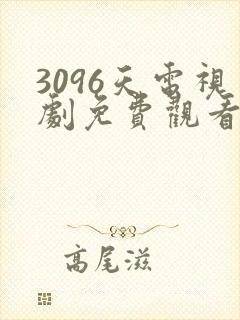 3096天電視
劇免費觀看
高尾滋